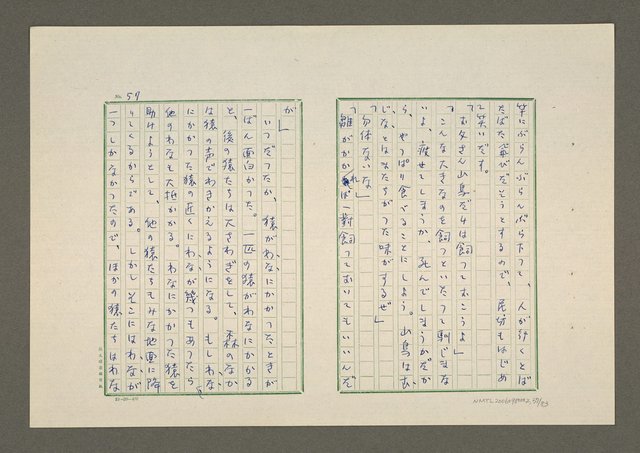 竿にぶらんぶらんぶら下って、人が行くとば
たばた飛びだそうとするので、尾分もはじめ
て笑いだす。
「お父さん山鳥だけは飼っておこうよ」
「こんな大きなのを飼っといたって馴じまな
いよ、痩せてしまうか、死んでしまうかだか
ら、やっぱり食べることにしよう。山鳥はむ
じなとはまたちがった味がするぜ」
「勿体ないな」
「雛がかかれば一対飼っておいてもいいんだ
No. 57
が」
いつだったか、猿がわなにかかったときが
一ばん面白かった。一匹の猿がわなにかかる
と、後の猿たちは大さわぎをして、森のなか
は猿の声でわきかえるようになる。もしわな
にかかった猿の近くにわなが幾つもあったら
他のわなも大抵かかる。わなにかかった猿を
助けようとして、他の猿たちもみな地面に降
りてくるからである。しかしそこにはわなが
一つしかなかったので、ほかの猿たちはわな
NMTL20060490002 57/83